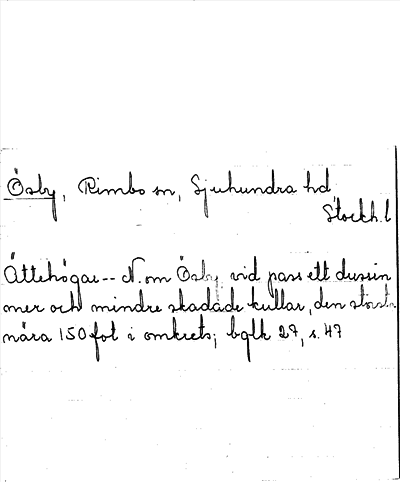 Ösby, Rimbo sn, Sjuhundra hd
Stockh. l
Ättehögar -- N. om Ösby vid pass ett dussin
mer och mindre skadade kullar, den störste
nära 150 fot i omkrets; bglk 27, s. 47